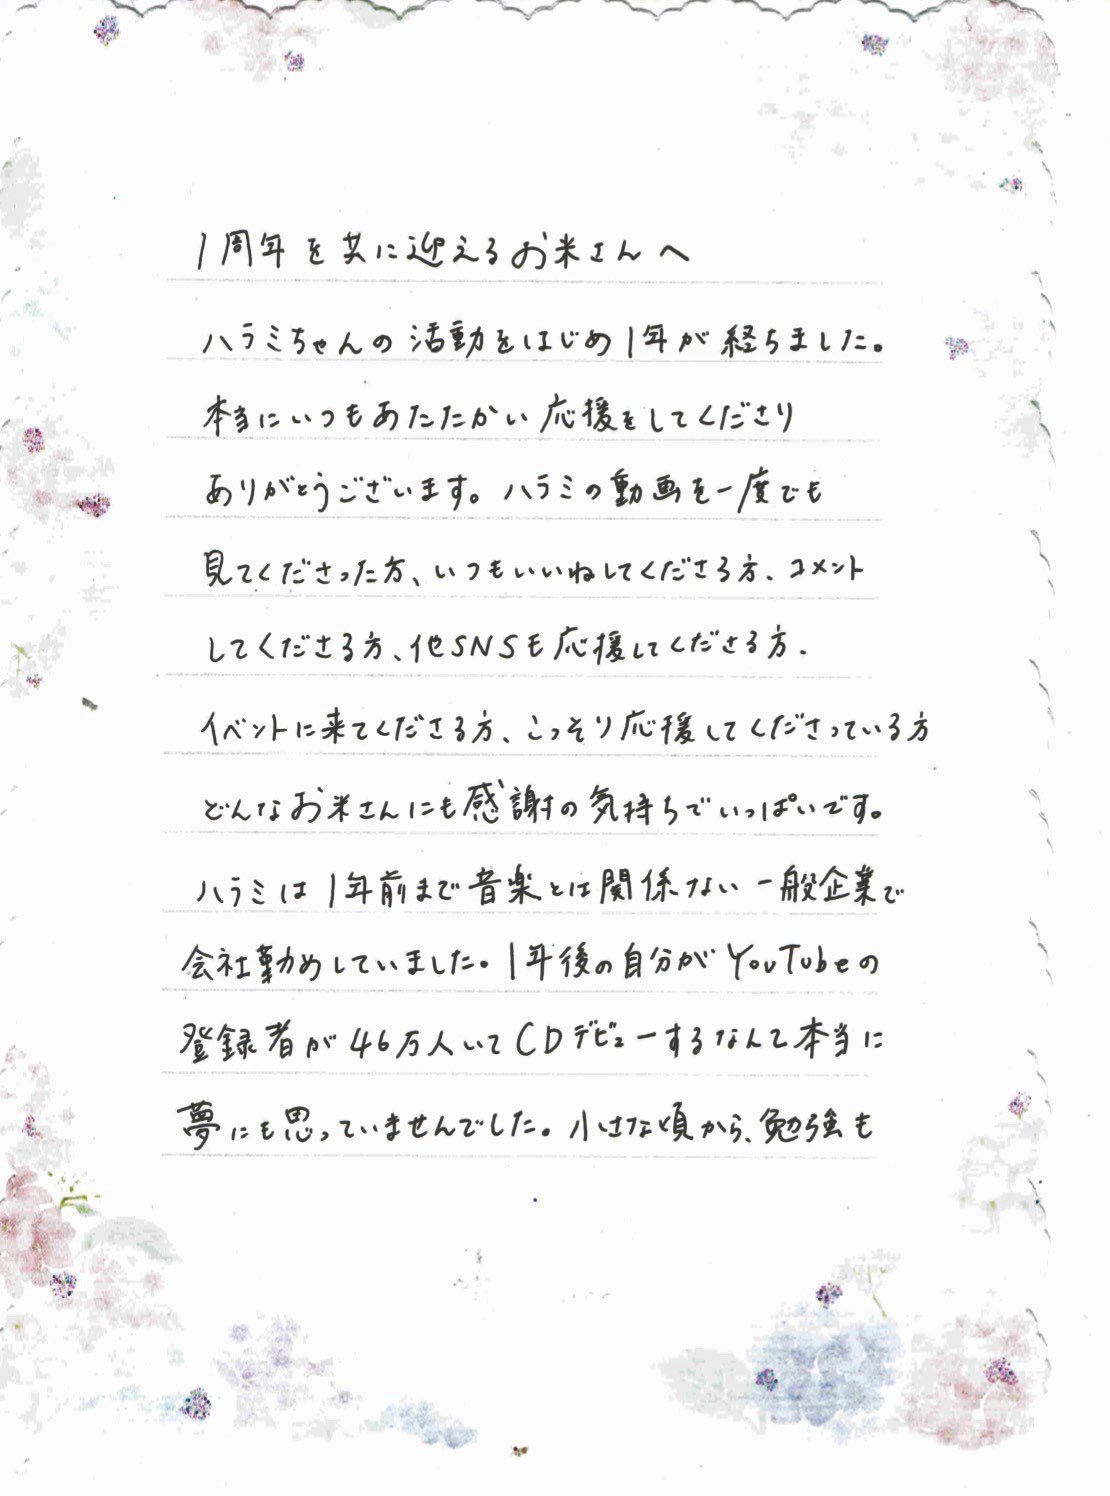 1周年を共に迎えるお米さんへ
ハラミちゃんの活動をはじめ1年が経ちました。
本当にいつもあたたかい応援をしてくださり
ありがとうございます。ハラミの動画を一度でも
見てくださった方、いつもいいねしてくださる方、コメント
してくださる方、他SNSも応援してくださる方、
イベントに来てくださる方、こっそり応援してくださっている方
どんなお米さんにも感謝の気持ちでいっぱいです。
ハラミは1年前まで音楽とは関係ない一般企業で
会社勤めしていました。1年後の自分がYouTubeの
登録者が46万人いてCDデビューするなんて本当に
夢にも思っていませんでした。小さな頃から、勉強も